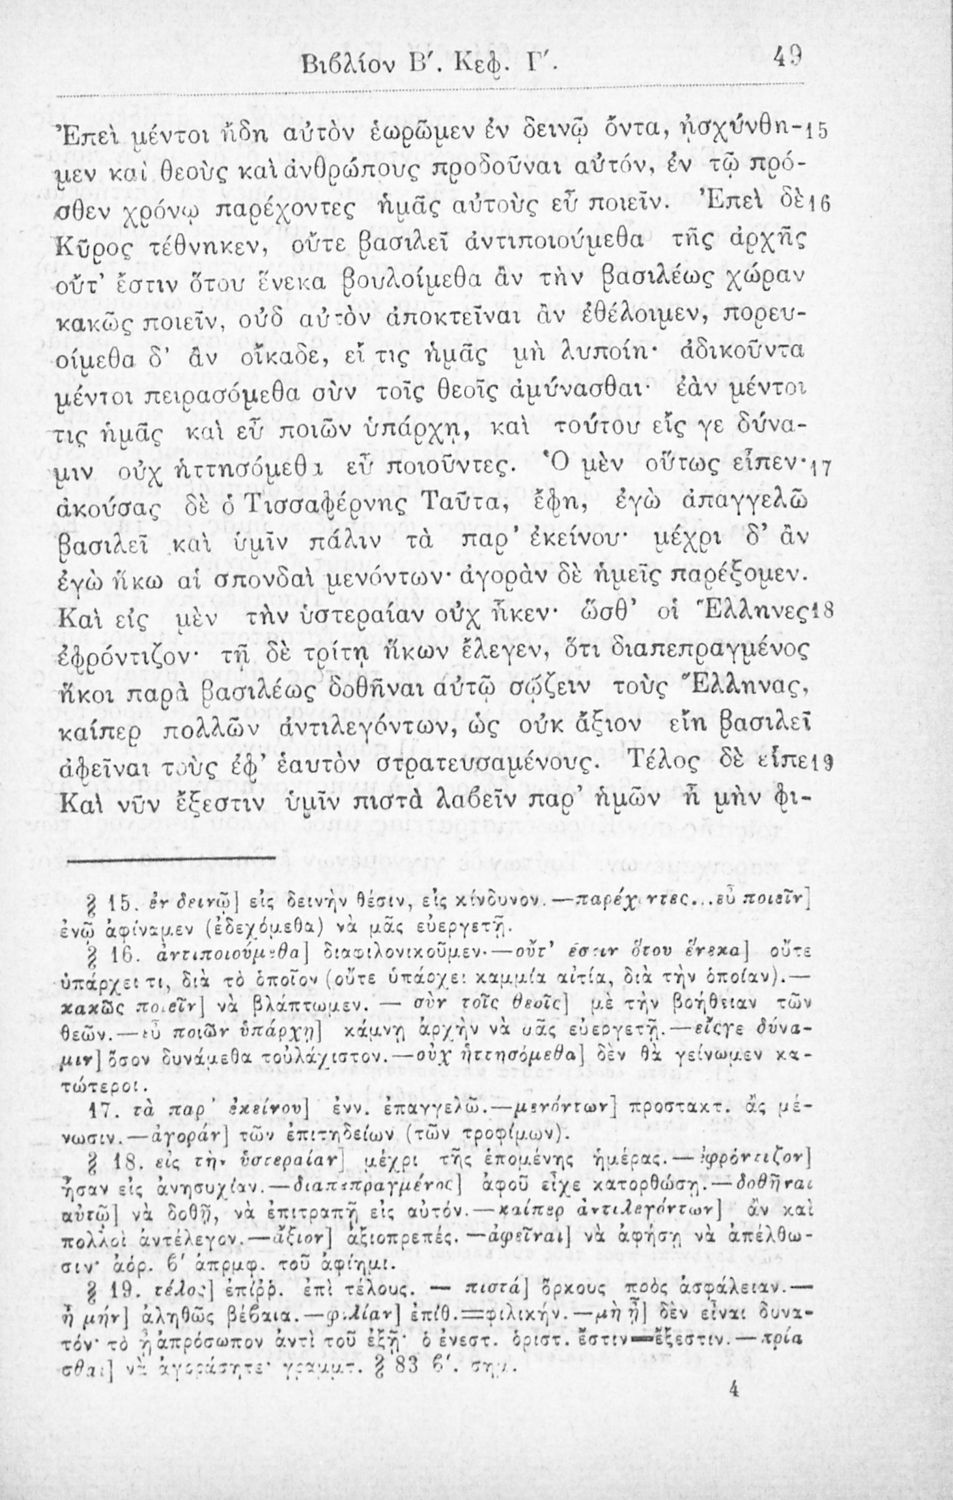 Βιβλίον Β΄. Κεφ. Γ΄. 49
Ἐπεὶ μέντοι ἤδη αὐτὸν ἑωρῶμεν ἐν δεινῷ ὄντα, ᾐσχύνθη- 15
μεν καὶ θεοὺς καὶ ἀνθρώπους προδοῦναι αὐτόν, ἐν τῷ πρό-
σθεν χρόνῳ παρέχοντες ἡμᾶς αὐτοὺς εὖ ποιεῖν. Ἐπεὶ δὲ 16
Κῦρος τέθνηκεν, οὔτε βασιλεῖ ἀντιποιούμεθα τῆς ἀρχῆς
οὔτ᾽ ἔστιν ὅτου ἕνεκα βουλοίμεθα ἂν τὴν βασιλέως χώραν
κακῶς ποιεῖν, οὐδ αὐτὸν ἀποκτεῖναι ἂν ἐθέλοιμεν, πορευ-
οίμεθα δ᾽ ἂν οἴκαδε, εἴ τις ἡμᾶς μὴ λυποίη· ἀδικοῦντα
μέντοι πειρασόμεθα σὺν τοῖς θεοῖς ἀμύνασθαι· ἐὰν μέντοι
τις ἡμᾶς καὶ εὖ ποιῶν ὑπάρχῃ, καὶ τούτου εἴς γε δύνα-
μιν οὐχ ἡττησόμεθα εὖ ποιοῦντες. Ὁ μὲν οὕτως εἶπεν· 17
ἀκούσας δὲ ὁ Τισσαφέρνης Ταῦτα, ἔφη, ἐγὼ ἀπαγγελῶ
βασιλεῖ καὶ ὑμῖν πάλιν τὰ παρ᾽ ἐκείνου· μέχρι δ᾽ ἂν
ἐγὼ ἥκω αἱ σπονδαὶ μενόντων· ἀγορὰν δὲ ἡμεῖς παρέξομεν.
Καὶ εἰς μὲν τὴν ὑστεραίαν οὐχ ἧκεν· ὥσθ᾽ οἱ Ἕλληνες 18
ἐφρόντιζον· τῇ δὲ τρίτῃ ἥκων ἔλεγεν, ὅτι διαπεπραγμένος
ἥκοι παρὰ βασιλέως δοθῆναι αὐτῷ σῴζειν τοὺς Ἕλληνας,
καίπερ πολλῶν ἀντιλεγόντων, ὡς οὐκ ἄξιον εἴη βασιλεῖ
ἀφεῖναι τοὺς ἐφ᾽ ἑαυτὸν στρατευσαμένους. Τέλος δὲ εἶπε 19
Καὶ νῦν ἔξεστιν ὑμῖν πιστὰ λαβεῖν παρ᾽ ἡμῶν ἦ μὴν φι-
§ 15. ἐν δεινῷ] εἰς δεινὴν θέσιν, εἰς κίνδυνον.—παρέχοντες...εὖ ποιεῖν]
ἐνῷ ἀφίναμεν (ἐδεχόμεθα) νὰ μᾶς εὐεργετῇ.
§ 16. ἀντιποιούμεθα] διαφιλονικοῦμεν.—οὔτ᾽ ἔστιν ὅτου ἕνεκα] οὔτε
ὑπάρχει τι, διὰ τὸ ὁποῖον (οὔτε ὑπάρχει καμμία αἰτία, διὰ τὴν ὁποίαν).—
κακῶς ποιεῖν] νὰ βλάπτωμεν. — σὺν τοῖς θεοῖς] μὲ τὴν βοήθειαν τῶν
θεῶν.—εὖ ποιῶν ὑπάρχῃ] κάμνῃ ἀρχὴν νὰ μᾶς εὐεργετῇ.—εἴςγε δύνα-
μιν] ὅσον δυνάμεθα τοὐλάχιστον.—οὐχ ἡττησόμεθα] δὲν θὰ γείνωμεν κα-
τώτεροι.
17. τὰ παρ᾽ ἐκείνου] ἐνν. ἐπαγγελῶ.—μενόντων] προστακτ. ἂς μέ-
νωσιν.—ἀγορὰν] τῶν ἐπιτηδείων (τῶν τροφίμων).
§ 18. εἰς τὴν ὑστεραίαν] μέχρι τῆς ἑπομένης ἡμέρας.—ἐφρόντιζον]
ἦσαν εἰς ἀνησυχίαν.—διαπεπραγμένος] ἀφοῦ εἶχε κατορθώσῃ.—δοθῆναι
αὐτῷ] νὰ δοθῇ, νὰ ἐπιτραπῇ εἰς αὐτόν.—καίπερ ἀντιλεγόντων] ἂν καὶ
πολλοὶ ἀντέλεγον.—ἄξιον] ἀξιοπρεπές.—ἀφεῖναι] νὰ ἀφήσῃ νὰ ἀπέλθω-
σιν· ἀόρ. β΄ ἀπρμφ. τοῦ ἀφίημι.
§ 19. τέλος] ἐπίρρ. ἐπὶ τέλους. — πιστὰ] ὅρκους πρὸς ἀσφάλειαν.—
ἦ μὴν] ἀληθῶς βέβαια.—φιλίαν] ἐπίθ.=φιλικήν.—μὴ ᾖ] δὲν εἶναι δυνα-
τόν· τὸ ᾖ ἀπρόσωπον ἀντὶ τοῦ ἐξῇ· ὁ ἐνεστ. ὁριστ. ἔστιν=ἔξεστιν.—πρία
σθαι] νὰ ἀγοράσητε· γραμμτ. § 83 β΄. σημ.
4